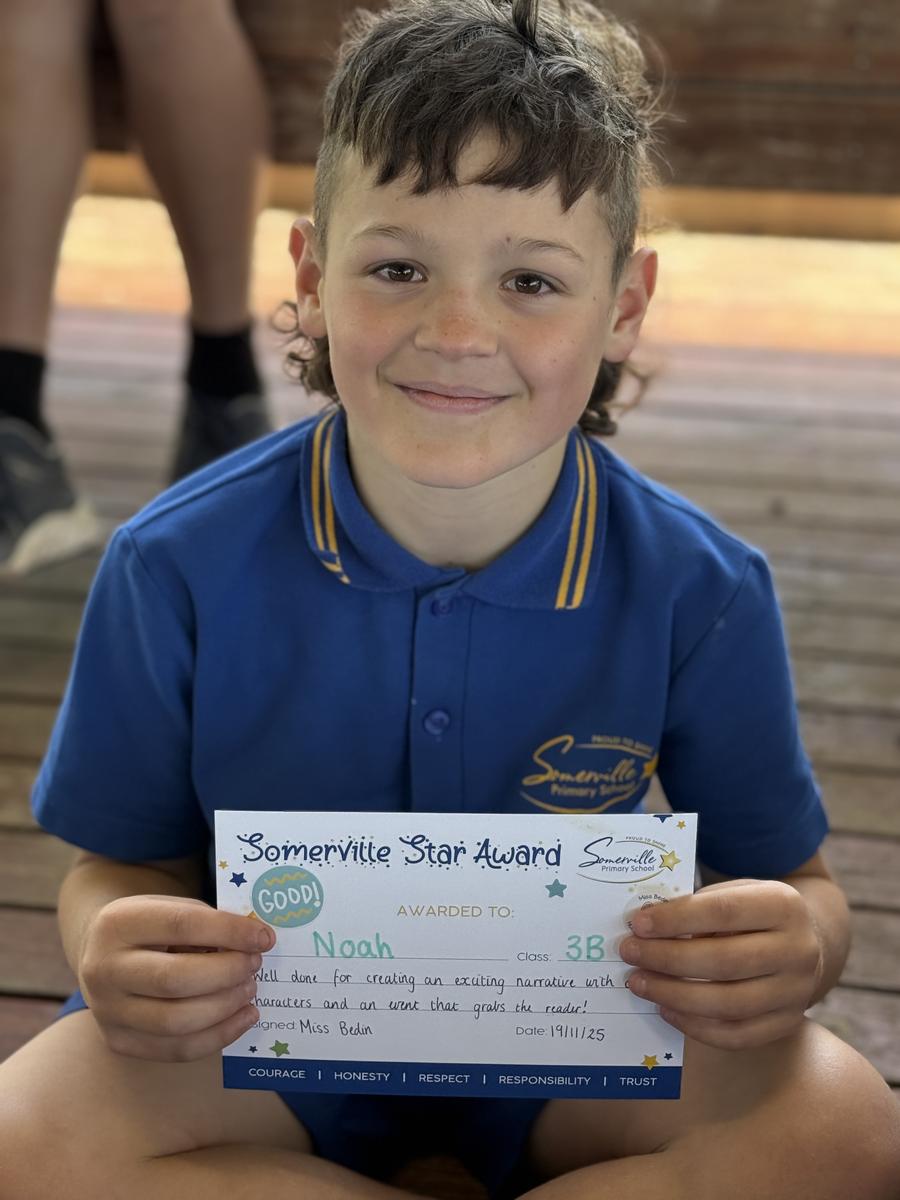 PROUD TO SHINE
Somerville
Primary School
Somerville Star Award
PROUD TO SHINE
Somerville
Primary School
GOOD!
Miss Bedin
AWARDED TO:
Noah Class: 3B
Well done for creating an exciting narrative with
characters and an event that grabs the reader!
Signed: Miss Bedin Date: 19/11/25
COURAGE | HONESTY | RESPECT | RESPONSIBILITY | TRUST